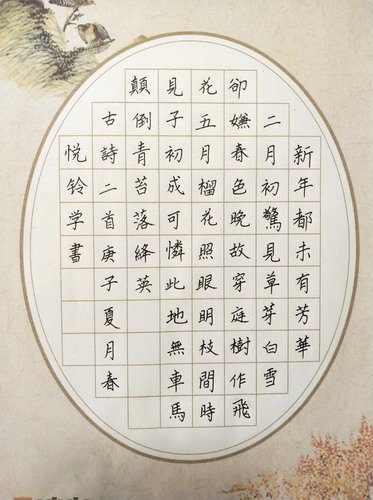 新年都未有芳華
二月初驚見草芽白雪
卻嫌春色晚故穿庭樹作飛
花五月榴花照眼明枝間時
見子初成可憐此地無車馬
顛倒青苔落絳英
古詩二首庚子夏月春
悦铃学書